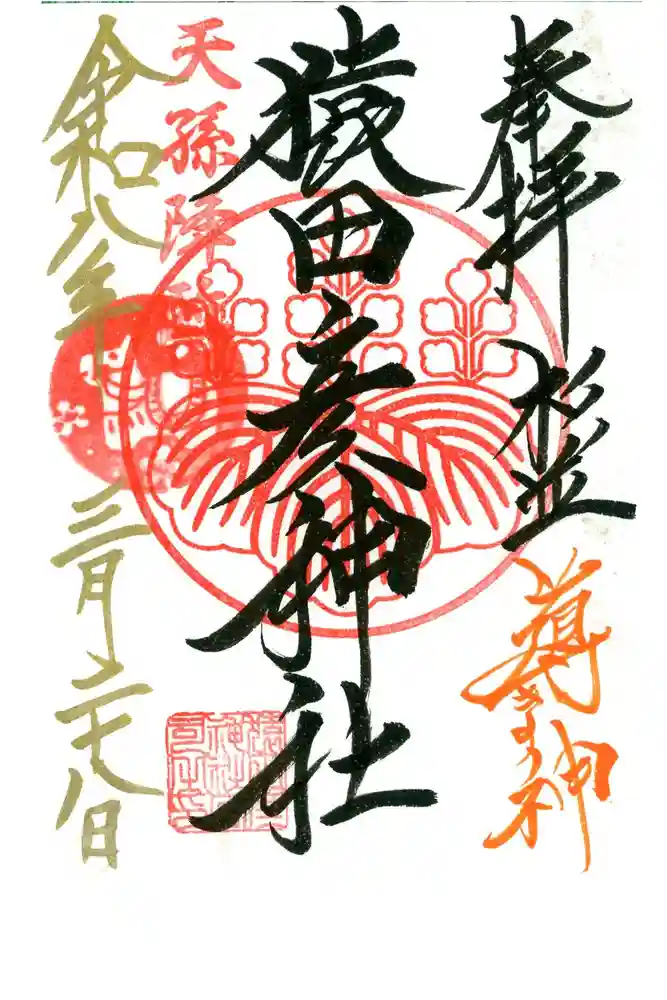 奉拝 杉並
導きの神
猿田彦神社
天孫降臨
令和八年 三月二七日